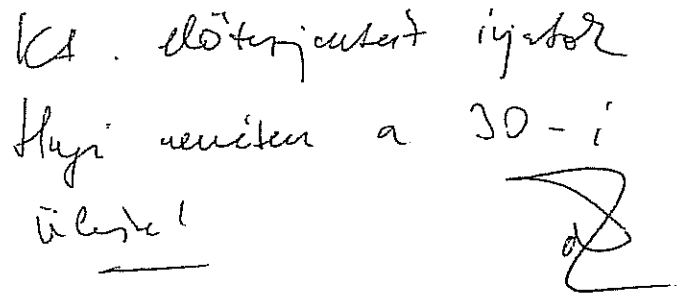 Kt. előterjesztést írjatok
Hugi nevében a 30-i
ülésre!